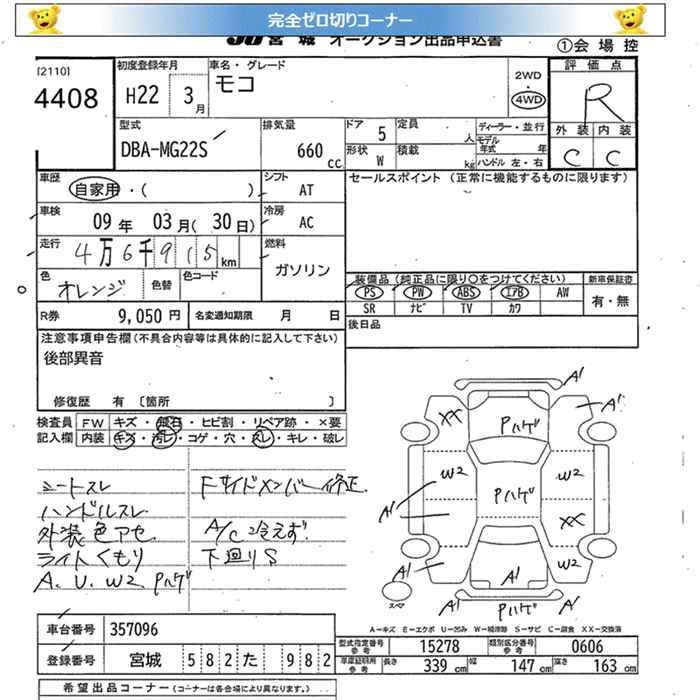 完全ゼロ切りコーナー
JU宮城 オークション出品申込書 ①会場控
[2110]
4408
初度登録年月 H22 3月
車名・グレード モコ
2WD・4WD
評価点 R
外装 内装
C C
型式 DBA-MG22S
排気量 660cc
ドア 5 形状 W
定員 人 積載 kg
ディーラー・並行
モデル年式 年
ハンドル 左・右
車歴 自家用・( )
シフト AT
セールスポイント (正常に機能するものに限ります)
車検 09年 03月(30日)
冷房 AC
走行 4万6千915km
燃料 ガソリン
色 オレンジ 色替 色コード
装備品(純正品に限り○をつけてください) 新車保証書
PS PW ABS エアB AW 有・無
SR ナビ TV カワ
R券 9,050円 名変通知期限 月 日
後日品
注意事項申告欄(不具合内容等は具体的に記入して下さい)
後部異音
修復歴 有〔箇所 〕
検査員 FW キズ・飛石・ヒビ割・リペア跡・×要
記入欄 内装 キズ・汚レ・コゲ・穴・スレ・キレ・破レ
シートスレ Fサイドメンバー修正
ハンドルスレ
外装色アセ A/C冷えず
ライトくもり 下廻りS
A、U、W2、Pハゲ
A1
XX Pハゲ A1
W2 Pハゲ W2
A1 XX
A1 A1 W2
スペア A1 Pハゲ A1
A-キズ E-エクボ U-凹み W-補修跡 S-サビ C-腐食 XX-交換済
車台番号 357096
登録番号 宮城 582 た 982
型式指定番号 参考 15278 類別区分番号 参考 0606
車庫証明用 参考 長さ 339cm 幅 147cm 高さ 163cm
希望出品コーナー(コーナーは各会場により異なります。)